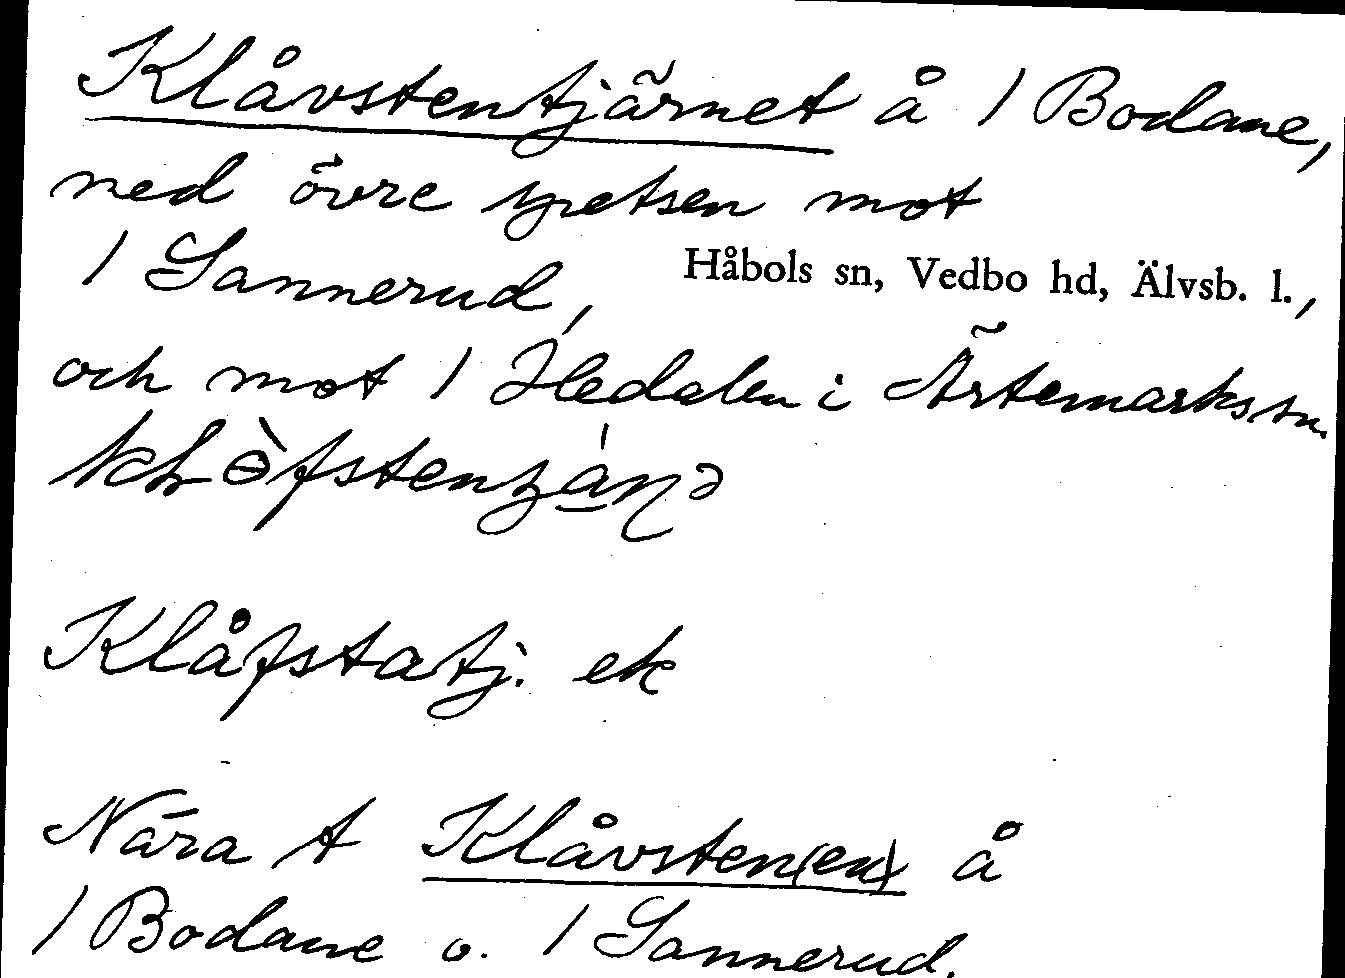 Klåvstentjärnet å / Bodane,
med övre spetsen mot
/ Sannerud, Håbols sn, Vedbo hd, Älvsb. l.,
och mot / Hedalen i Ärtemarks sn.
Klåfstatj. ek
Nära t Klåvsten(en) å
/ Bodane o. / Sannerud.